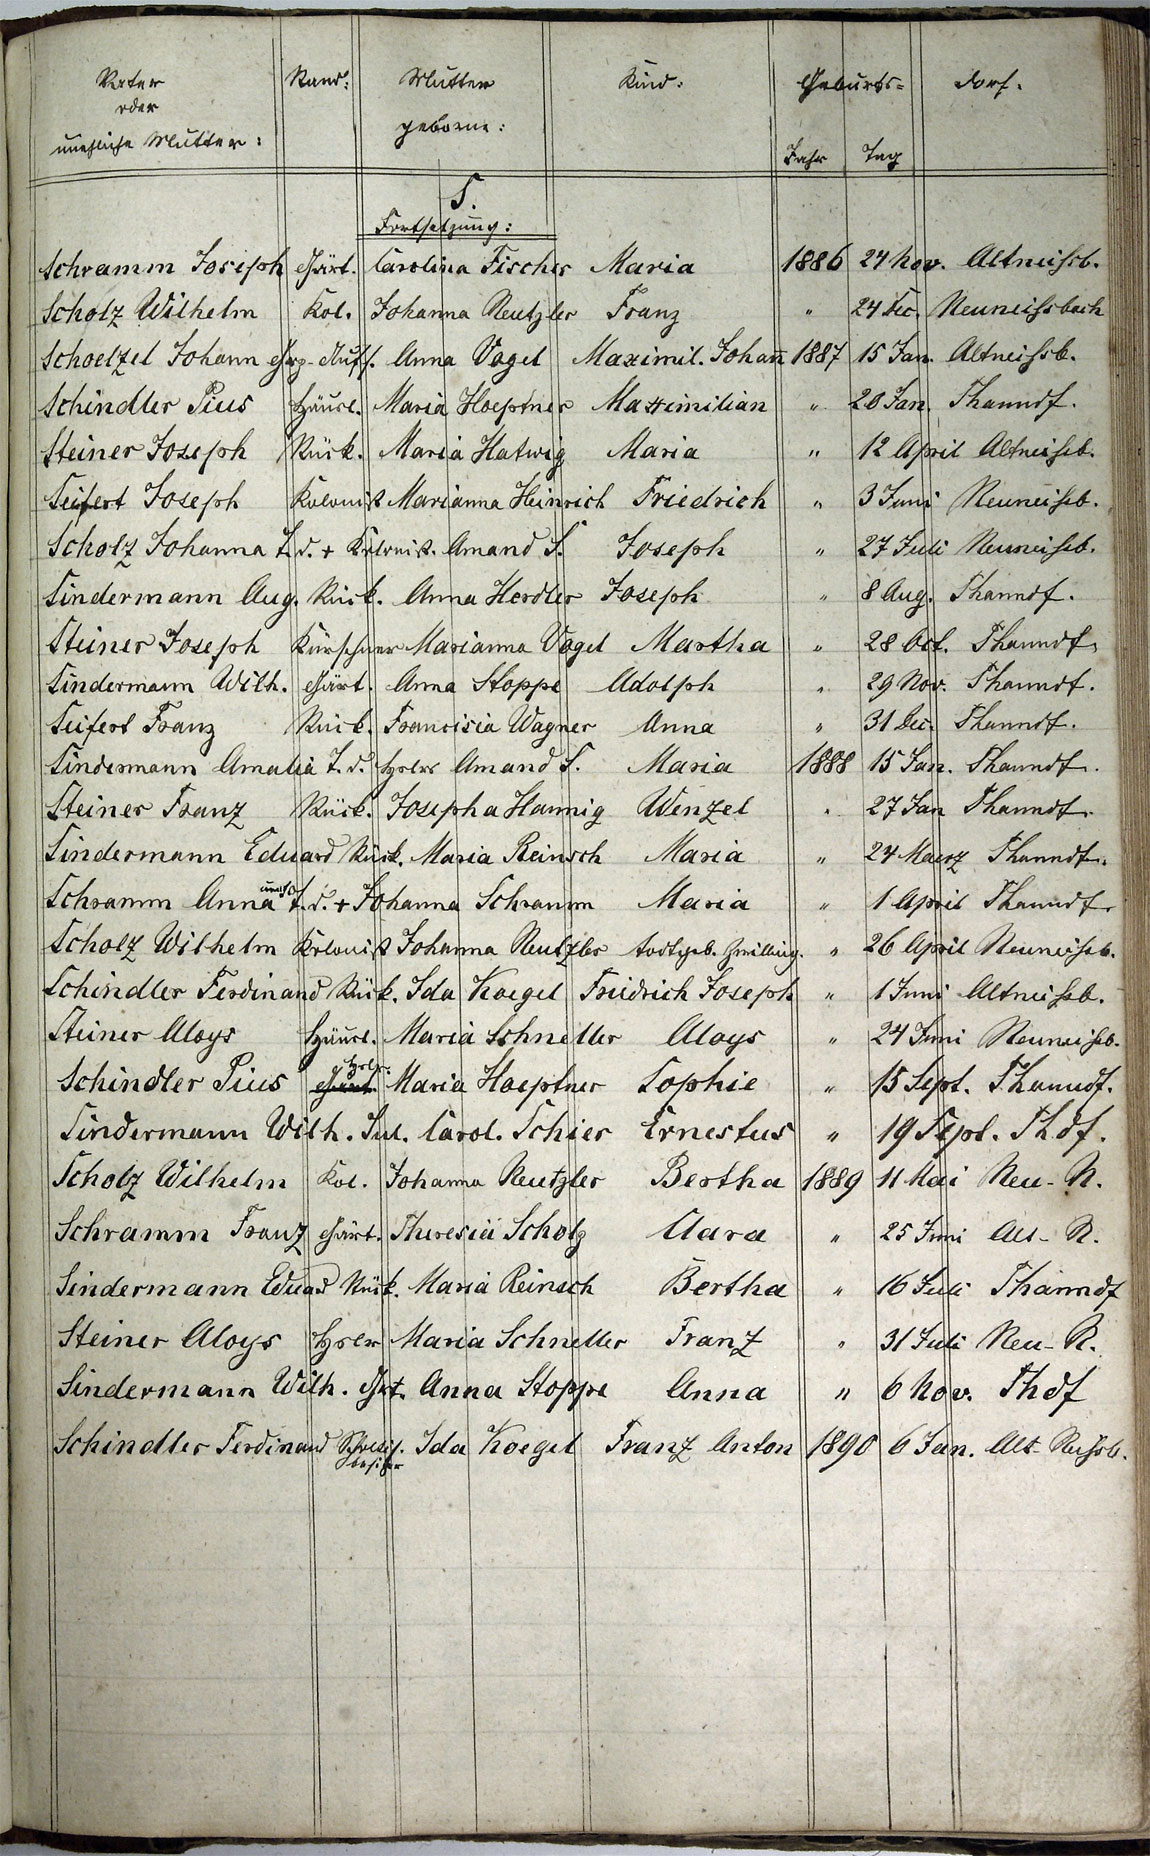 Vater Stand: Mutter Kind: Geburts= Dorf.
oder geborne:
uneheliche Mutter: Jahr Tag
S.
Fortsetzung:
Schramm Joseph Gärt. Carolina Fischer Maria 1886 24 Nov. Altneissb.
Scholz Wilhelm Kol. Johanna Neutzler Franz " 24 Dec. Neuneissbach
Schoelzel Johann Anna Vogel Maximil. Johann 1887 15 Jan. Altneissb.
Schindler Pius Häusl. Maria Hoeptner Maximilian " 20 Jan. Thanndf.
Steiner Joseph Rück. Maria Hatwig Maria " 12 April Altneissb.
Seifert Joseph Kolonist Marianna Heinrich Friedrich " 3 Juni Neuneissb.
Scholz Johanna T. d. + Kolonist. Amand S. Joseph " 27 Juli Neuneissb.
Sindermann Aug. Rück. Anna Herdler Joseph " 8 Aug. Thanndf.
Steiner Joseph Kürschner Marianna Vogel Martha " 28 Oct. Thanndf.
Sindermann Wilh. Gärt. Anna Stoppe Adolph " 29 Nov. Thanndf.
Seifert Franz Rück. Francisca Wagner Anna " 31 Dec. Thanndf.
Sindermann Amalia T. d. Hslrs Amand S. Maria 1888 15 Jan. Thanndf.
Steiner Franz Rück. Josepha Hannig Wenzel " 27 Jan Thanndf.
Sindermann Eduard Rück. Maria Reinsch Maria " 24 Maerz Thanndf.
Schramm Anna T. d. + Johanna Schramm Maria " 1 April Thanndf.
Scholz Wilhelm Kolonist Johanna Neutzler todtgeb. Zwilling. " 26 April Neuneissb.
Schindler Ferdinand Rück. Ida Koegel Friedrich Joseph " 1 Juni Altneissb.
Steiner Aloys Häusl. Maria Schneller Aloys " 24 Juni Neuneissb.
Schindler Pius Gärt. Hslr. Maria Hoeptner Sophie " 15 Sept. Thanndf.
Sindermann Wilh. Inl. Carol. Schier Ernestus " 19 Sept. Thdf.
Scholz Wilhelm Kol. Johanna Neutzler Bertha 1889 11 Mai Neu-N.
Schramm Franz Gärt. Theresia Scholz Clara " 25 Juni Alt-N.
Sindermann Eduard Rück. Maria Reinsch Bertha " 16 Juli Thanndf
Steiner Aloys Hslr Maria Schneller Franz " 31 Juli Neu-N.
Sindermann Wilh. Grt. Anna Stoppe Anna " 6 Nov. Thdf
Schindler Ferdinand Ida Koegel Franz Anton 1890 6 Jan. Alt-Neissb.
besitzer